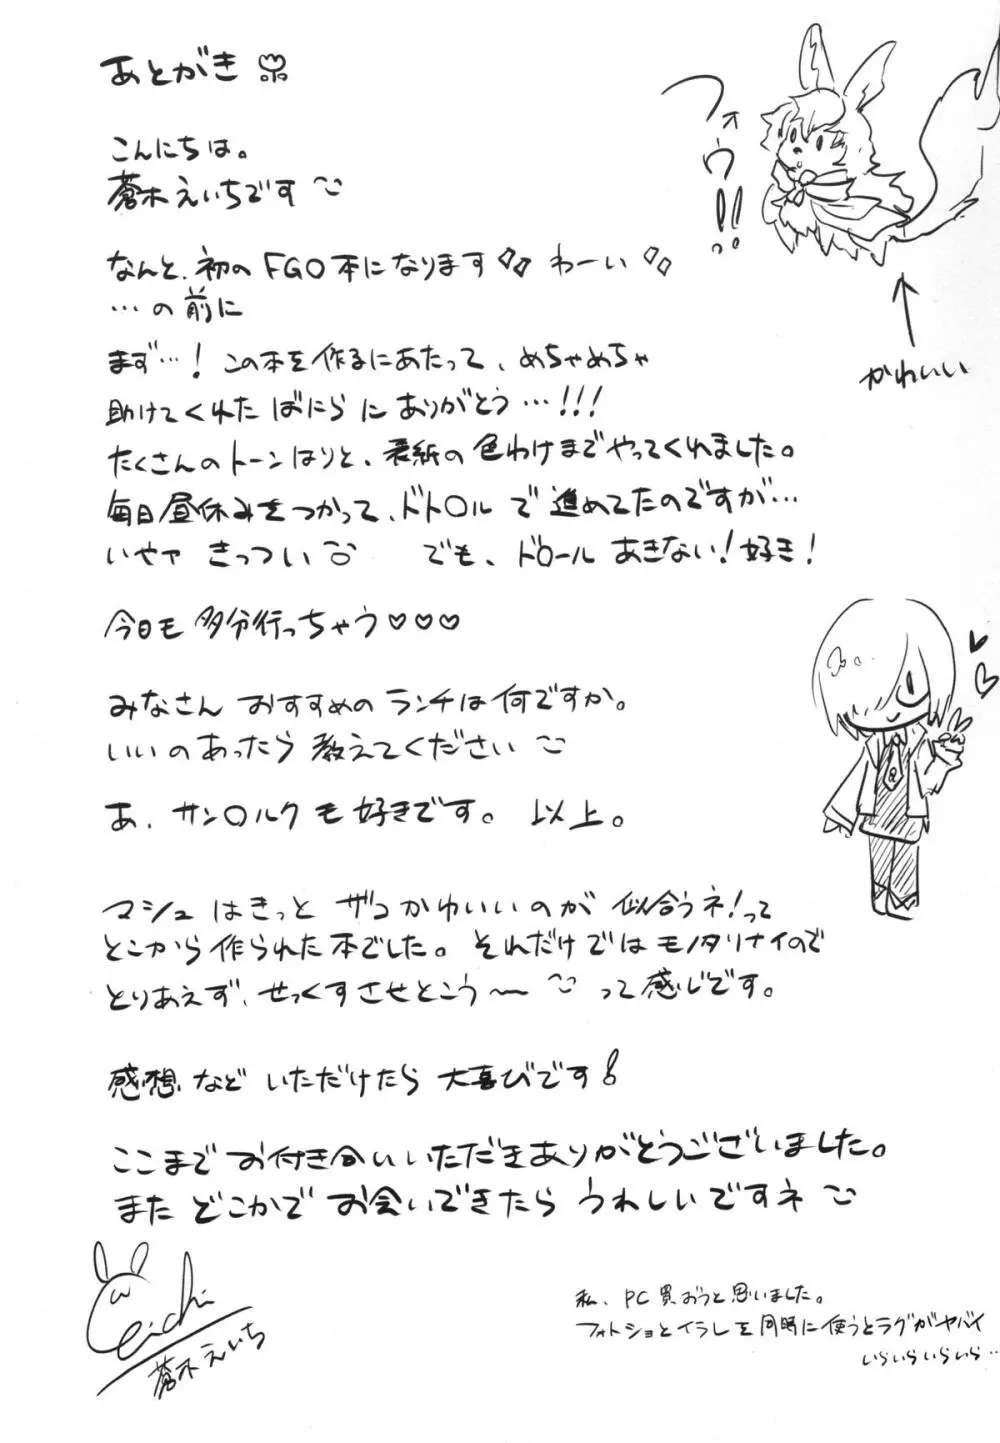 あとがき
フォーウ!!
こんにちは。
蒼木えいちです
なんと、初のFGO本になります わーい
…の前に
かわいい
まず…!この本を作るにあたって、めちゃめちゃ
助けてくれた ばにら に ありがとう…!!!
たくさんのトーンはりと、表紙の色わけまでやってくれました。
毎日昼休みをつかって、ドト○ルで進めてたのですが…
いやァ きっつい でも、ド○ール あきない!好き!
今日も多分行っちゃう♡♡♡
みなさん おすすめの ランチは何ですか。
いいのあったら 教えてください
あ、サン○ルクも好きです。 以上。
マシュはきっと ザコかわいいのが 似合うネ!って
とこから作られた本でした。それだけではモノタリナイので
とりあえず、せっくすさせとこう〜 って感じです。
感想など いただけたら 大喜びです!
ここまで お付き合いいただきありがとうございました。
また どこかで お会いできたら うれしいですネ
eichi
蒼木えいち
私、PC買おうと思いました。
フォトショとイラレを同時に使うとラグがヤバイ
いらいらいらいら…